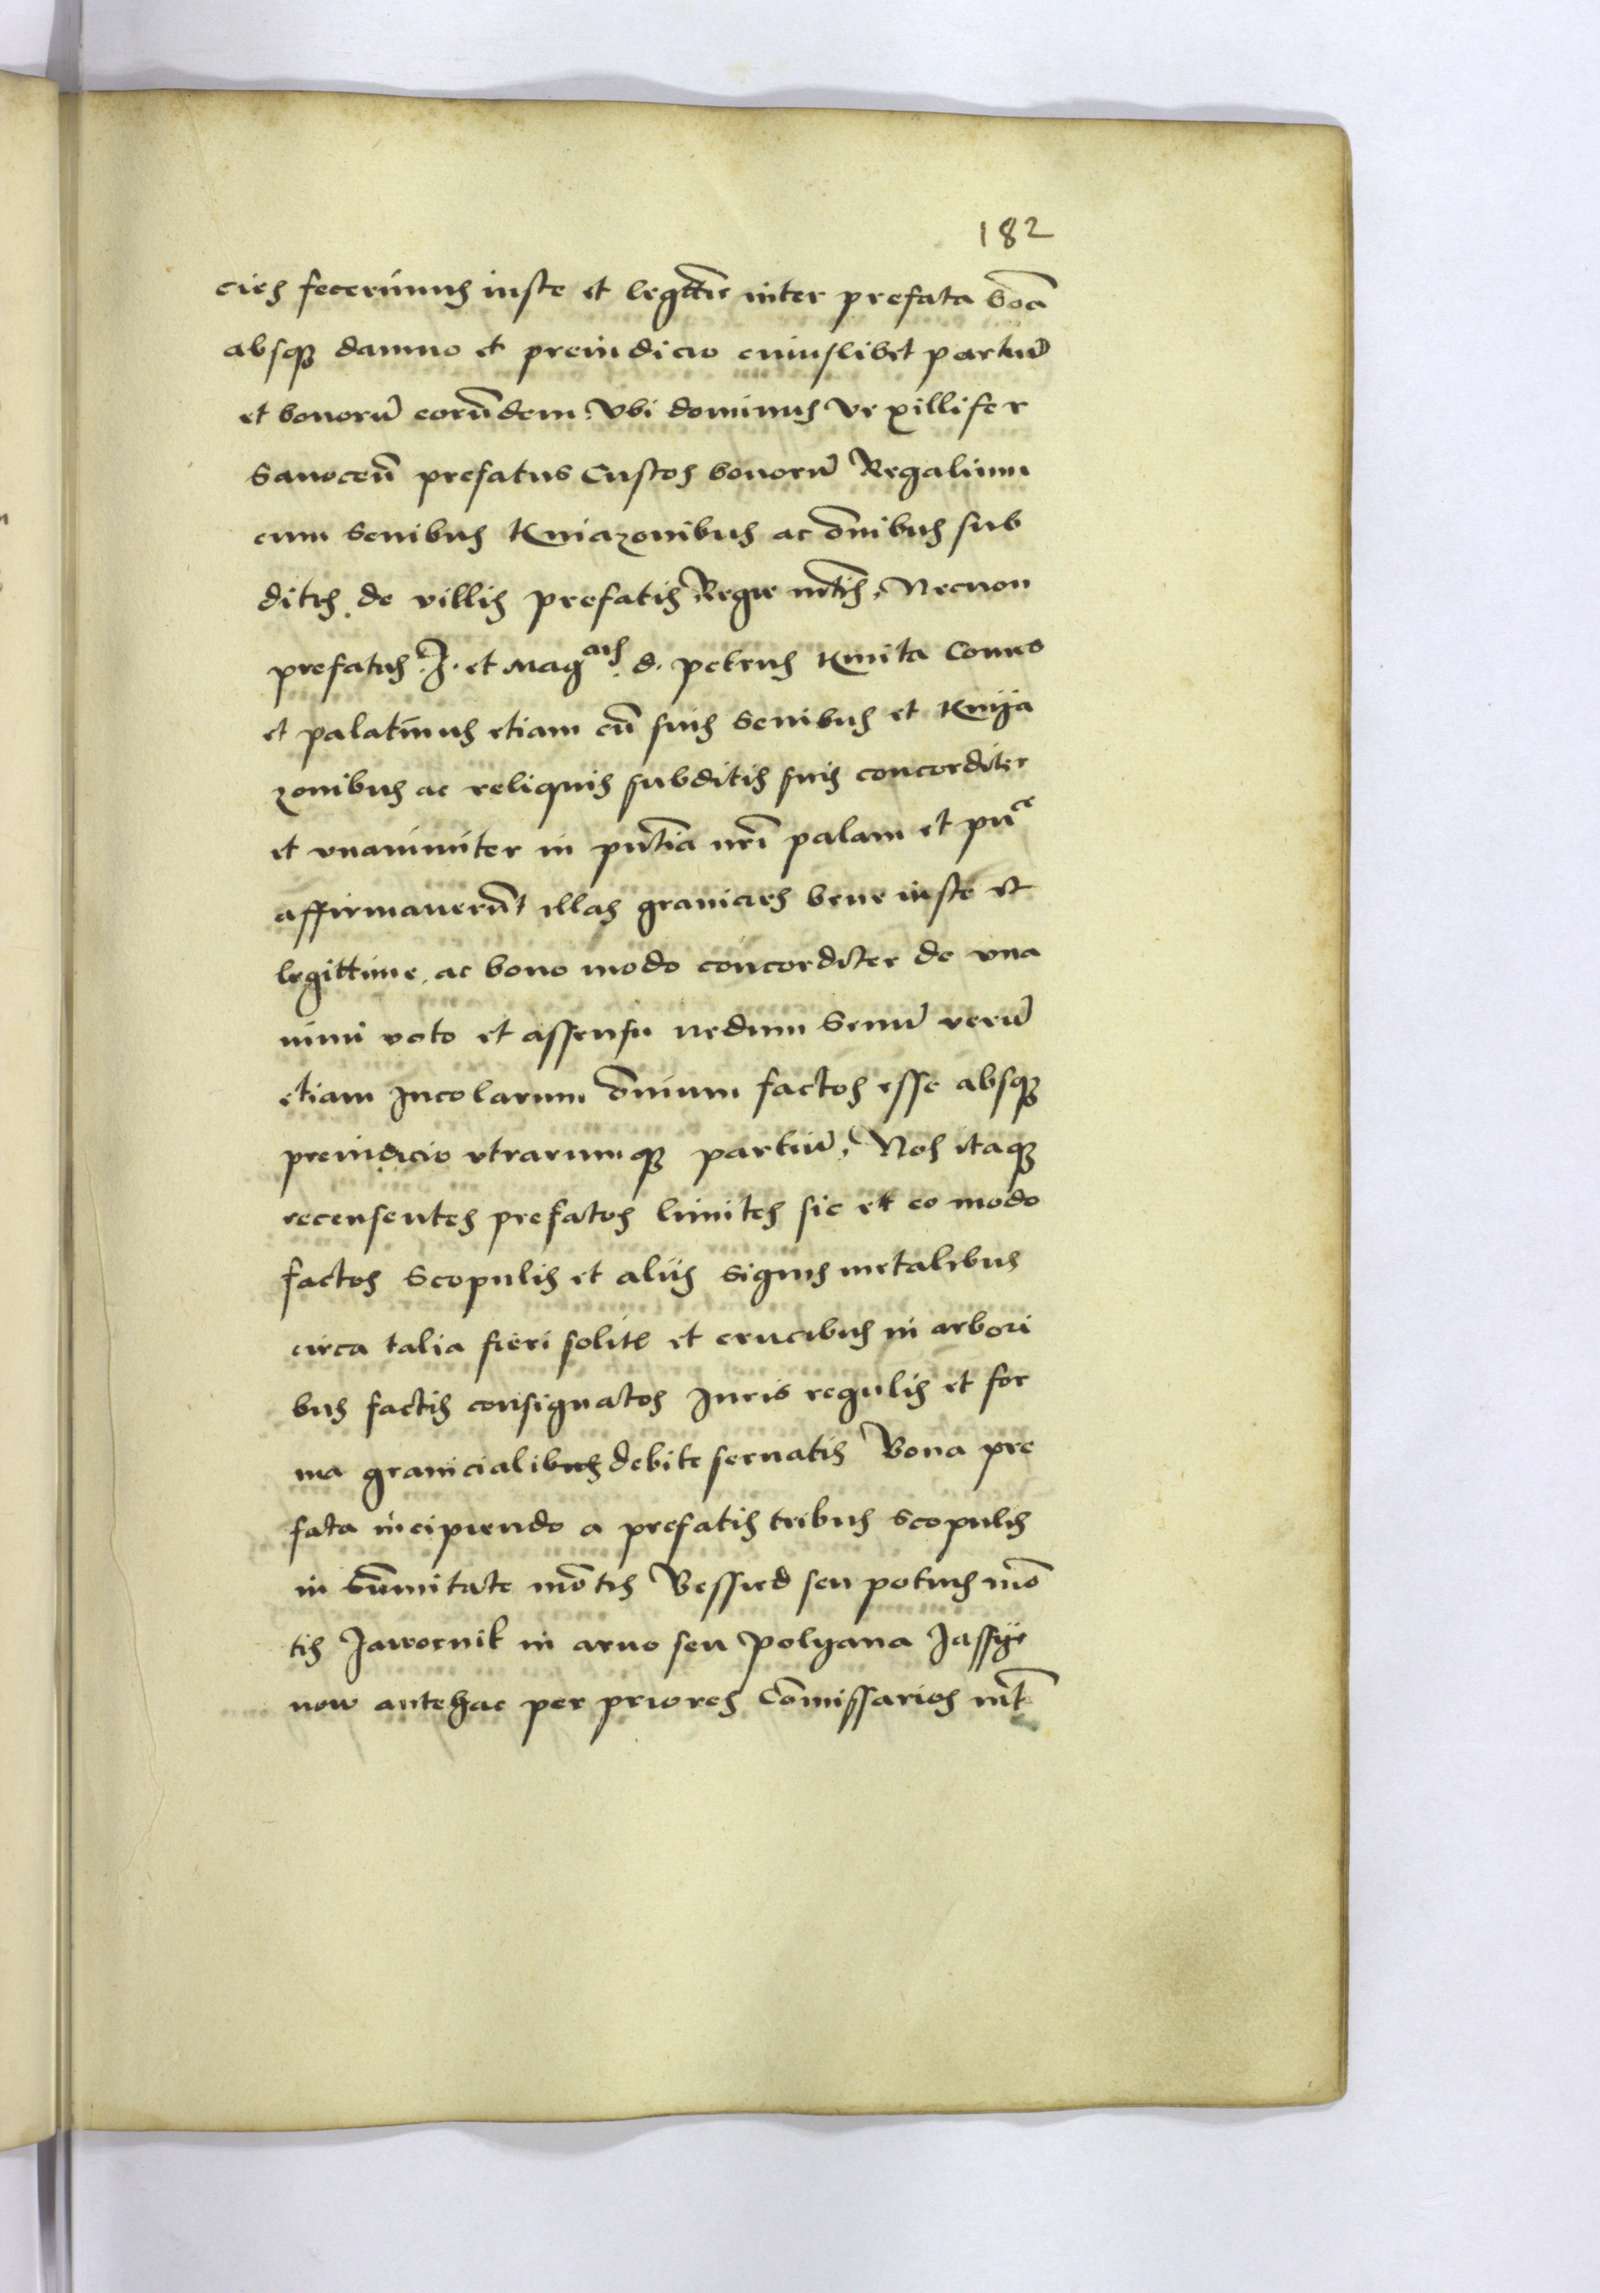 182
cies fecerimus iuste et legttie inter prefata boā
absqꝫ damno et preiudicio cuiuslibet partiū
et bonorū eorūdem, Vbi dominus vexillifer
Sanoceñ prefatus Custos bonorū Regalium
cum Senibus Kniazonibus ac ōnibus sub
ditis de villis prefatis Regie mtis, Necnon
prefatus .J. et Mag^cus d. petrus Kmita Comes
et palatinus etiam cū suis Senibus et Knija
zonibus ac reliquis subditis suis concorditer
et vnanimiter in pñtia nrī palam et pu^ce
affirmauerūt illas granicies bene iuste et
legittime, ac bono modo concorditer de vna
nimi voto et assensu nedum Senū verū
etiam Incolarum ōnium factos esse absqꝫ
preiudicio vtrarumqꝫ partiū, Nos itaqꝫ
recensentes prefatos limites sic et eo modo
factos Scopulis et aliis signis metalibus
circa talia fieri solitis et crucibus in arbori
bus factis consignatos Iuris regulis et for
ma granicialibus debite seruatis Bona pre
fata incipiendo a prefatis tribus Scopulis
in Sūmitate mōtis Bessied seu potius mō
tis Jawornik in aruo seu polyana Jassye
now antehac per priores Cōmissarios mt